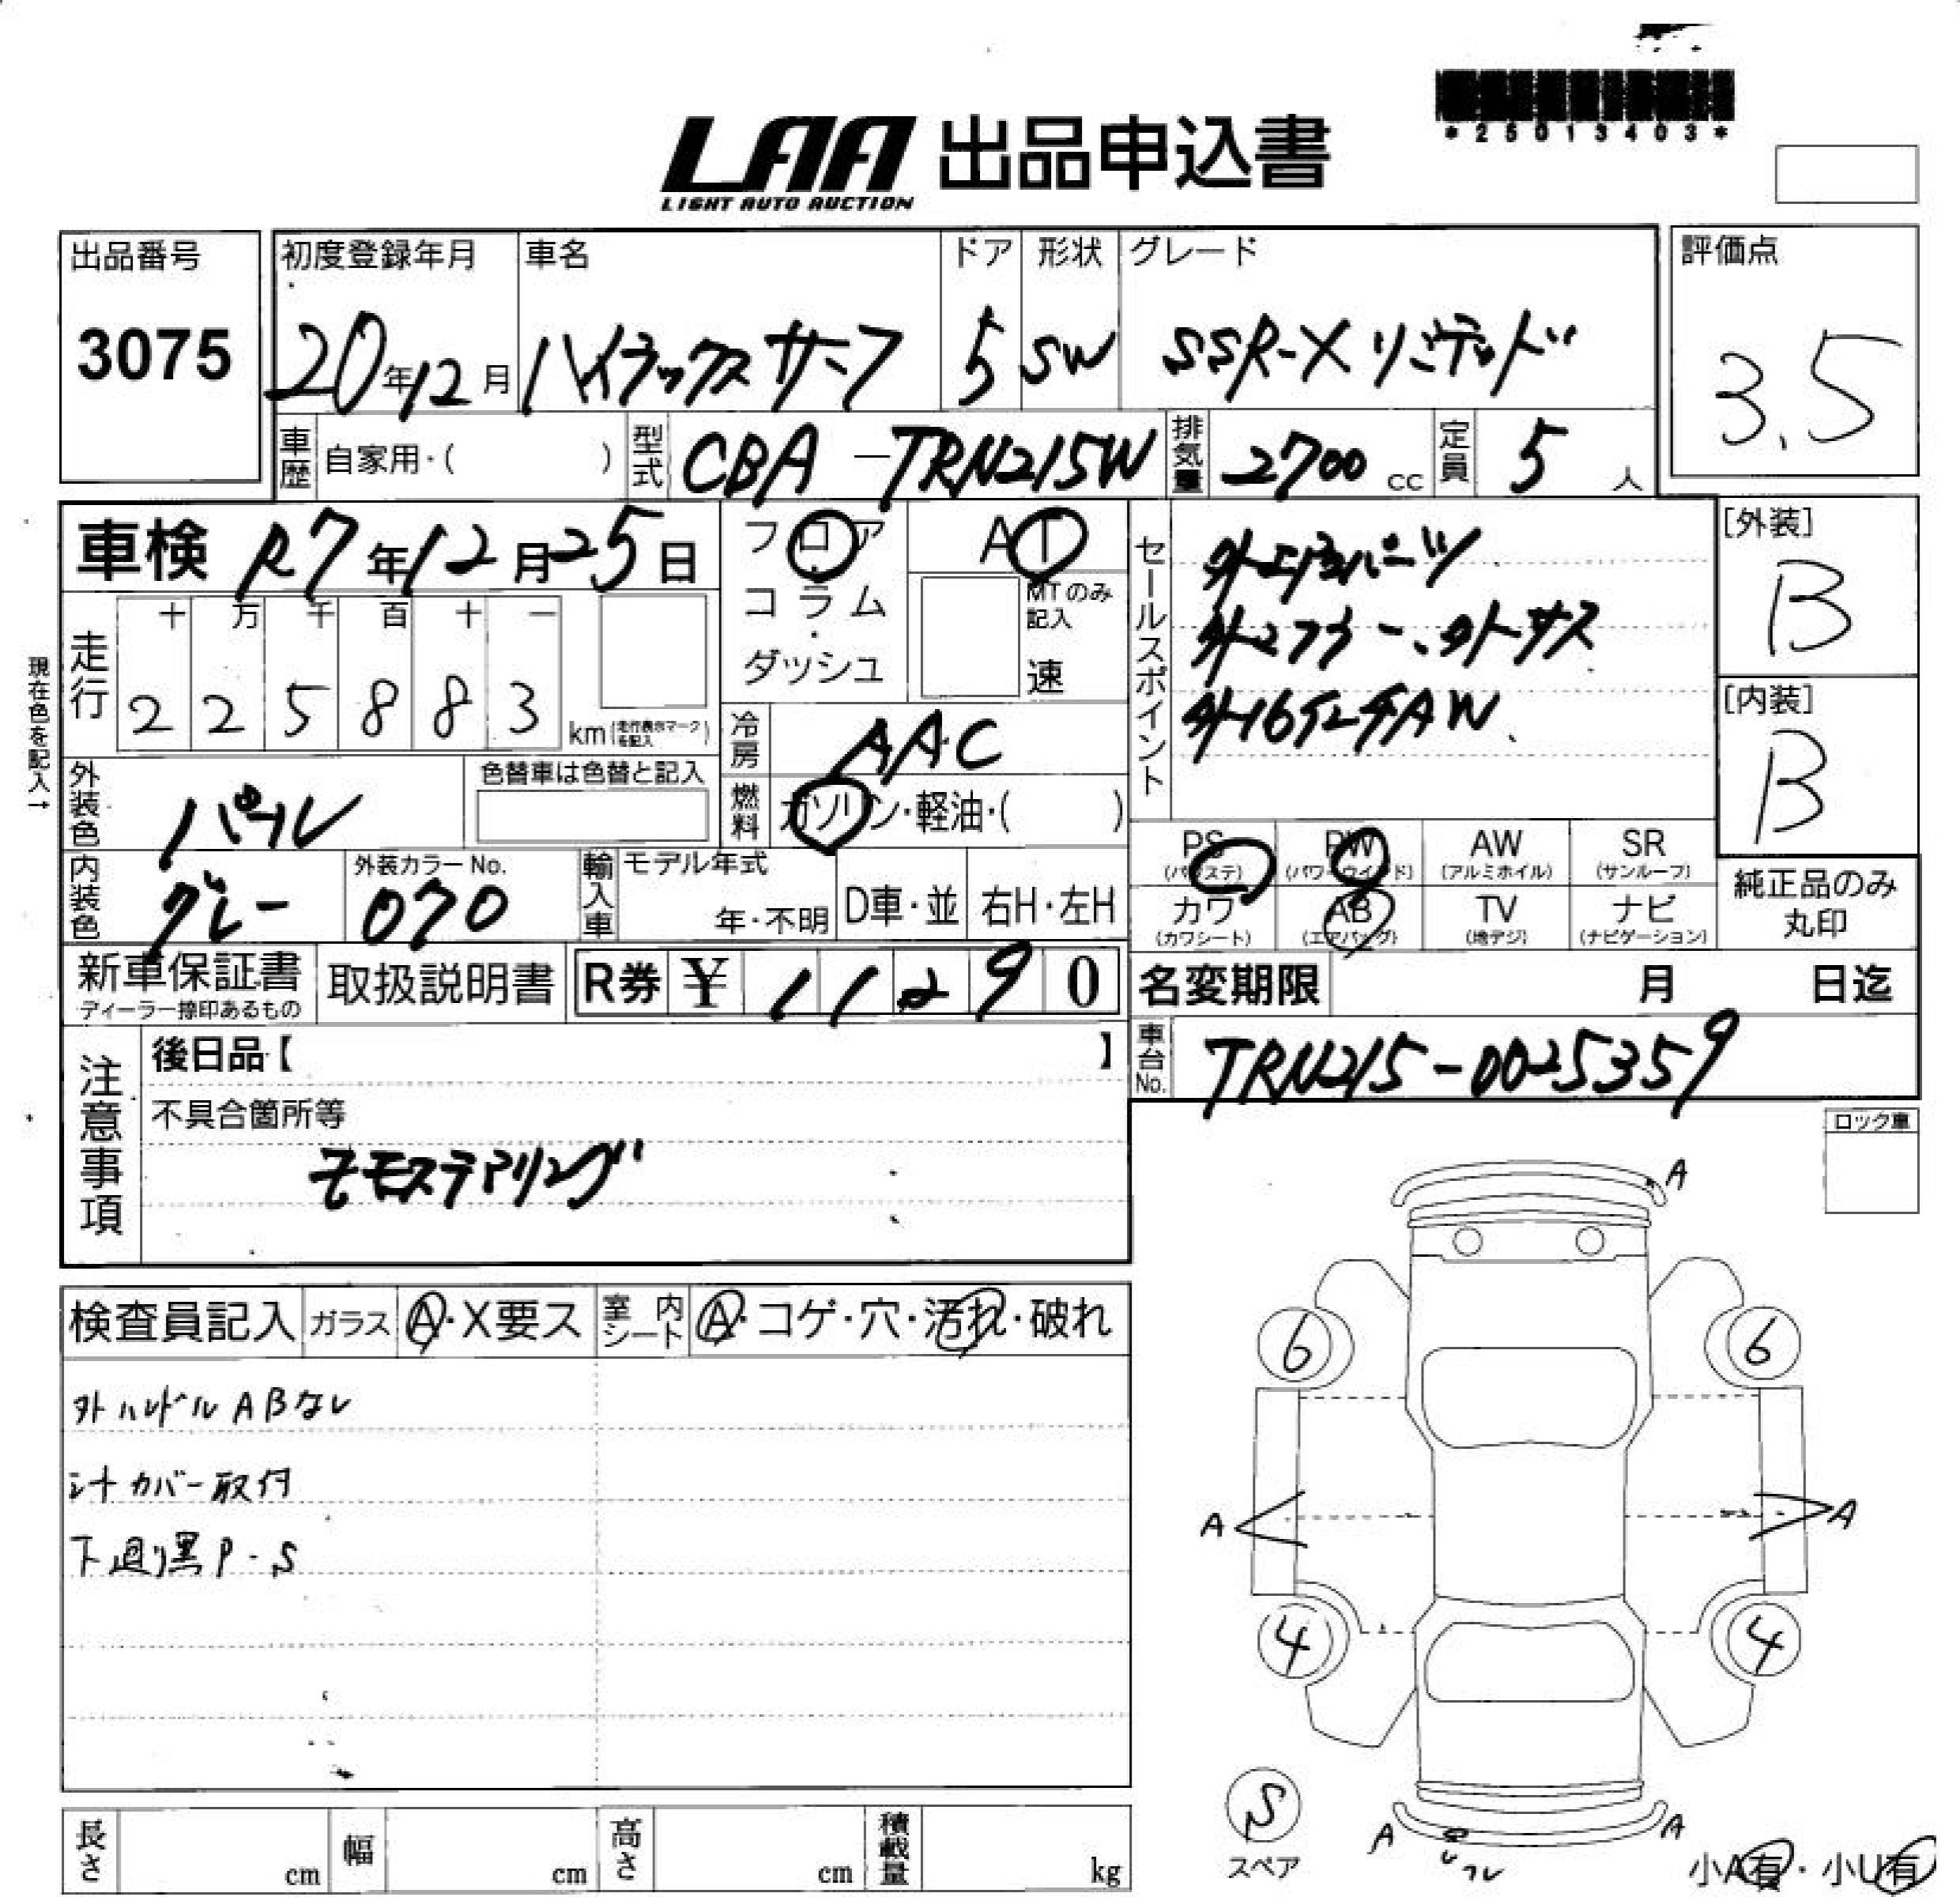 *25013403*
LAA 出品申込書
LIGHT AUTO AUCTION
出品番号 初度登録年月 車名 ドア 形状 グレード 評価点
3075 20年12月 ハイラックスサーフ 5 SW SSR-Xリミテッド 3.5
車歴 自家用・( ) 型式 CBA-TRN215W 排気量 2700 cc 定員 5人
車検 R7年12月25日 フロア AT
コラム・ダッシュ MTのみ記入 速
セールスポイント
外16インチAW
[外装] B
[内装] B
走行 十万千百十一
225883 km(走行表示マークを記入)
現在色を記入→
冷房 AAC
外装色 パール 色替車は色替と記入
燃料 ガソリン・軽油・( )
内装色 グレー 外装カラーNo. 070
輸入車 モデル年式 年・不明 D車・並 右H・左H
PS(パワステ) PW(パワーウインド) AW(アルミホイル) SR(サンルーフ)
カワ(カワシート) AB(エアバッグ) TV(地デジ) ナビ(ナビゲーション)
純正品のみ丸印
新車保証書 ディーラー捺印あるもの 取扱説明書 R券 ¥11290
名変期限 月 日迄
車台No. TRN215-0025359
注意事項
後日品【 】
不具合箇所等
モモステアリング
ロック車
検査員記入 ガラス A・X要ス 室内シート A・コゲ・穴・汚れ・破れ
外ハンドルABなし
シートカバー取付
下廻り黒P・S
A
6 6
A A
4 4
S
スペア
A A
小A有・小U有
長さ cm 幅 cm 高さ cm 積載量 kg